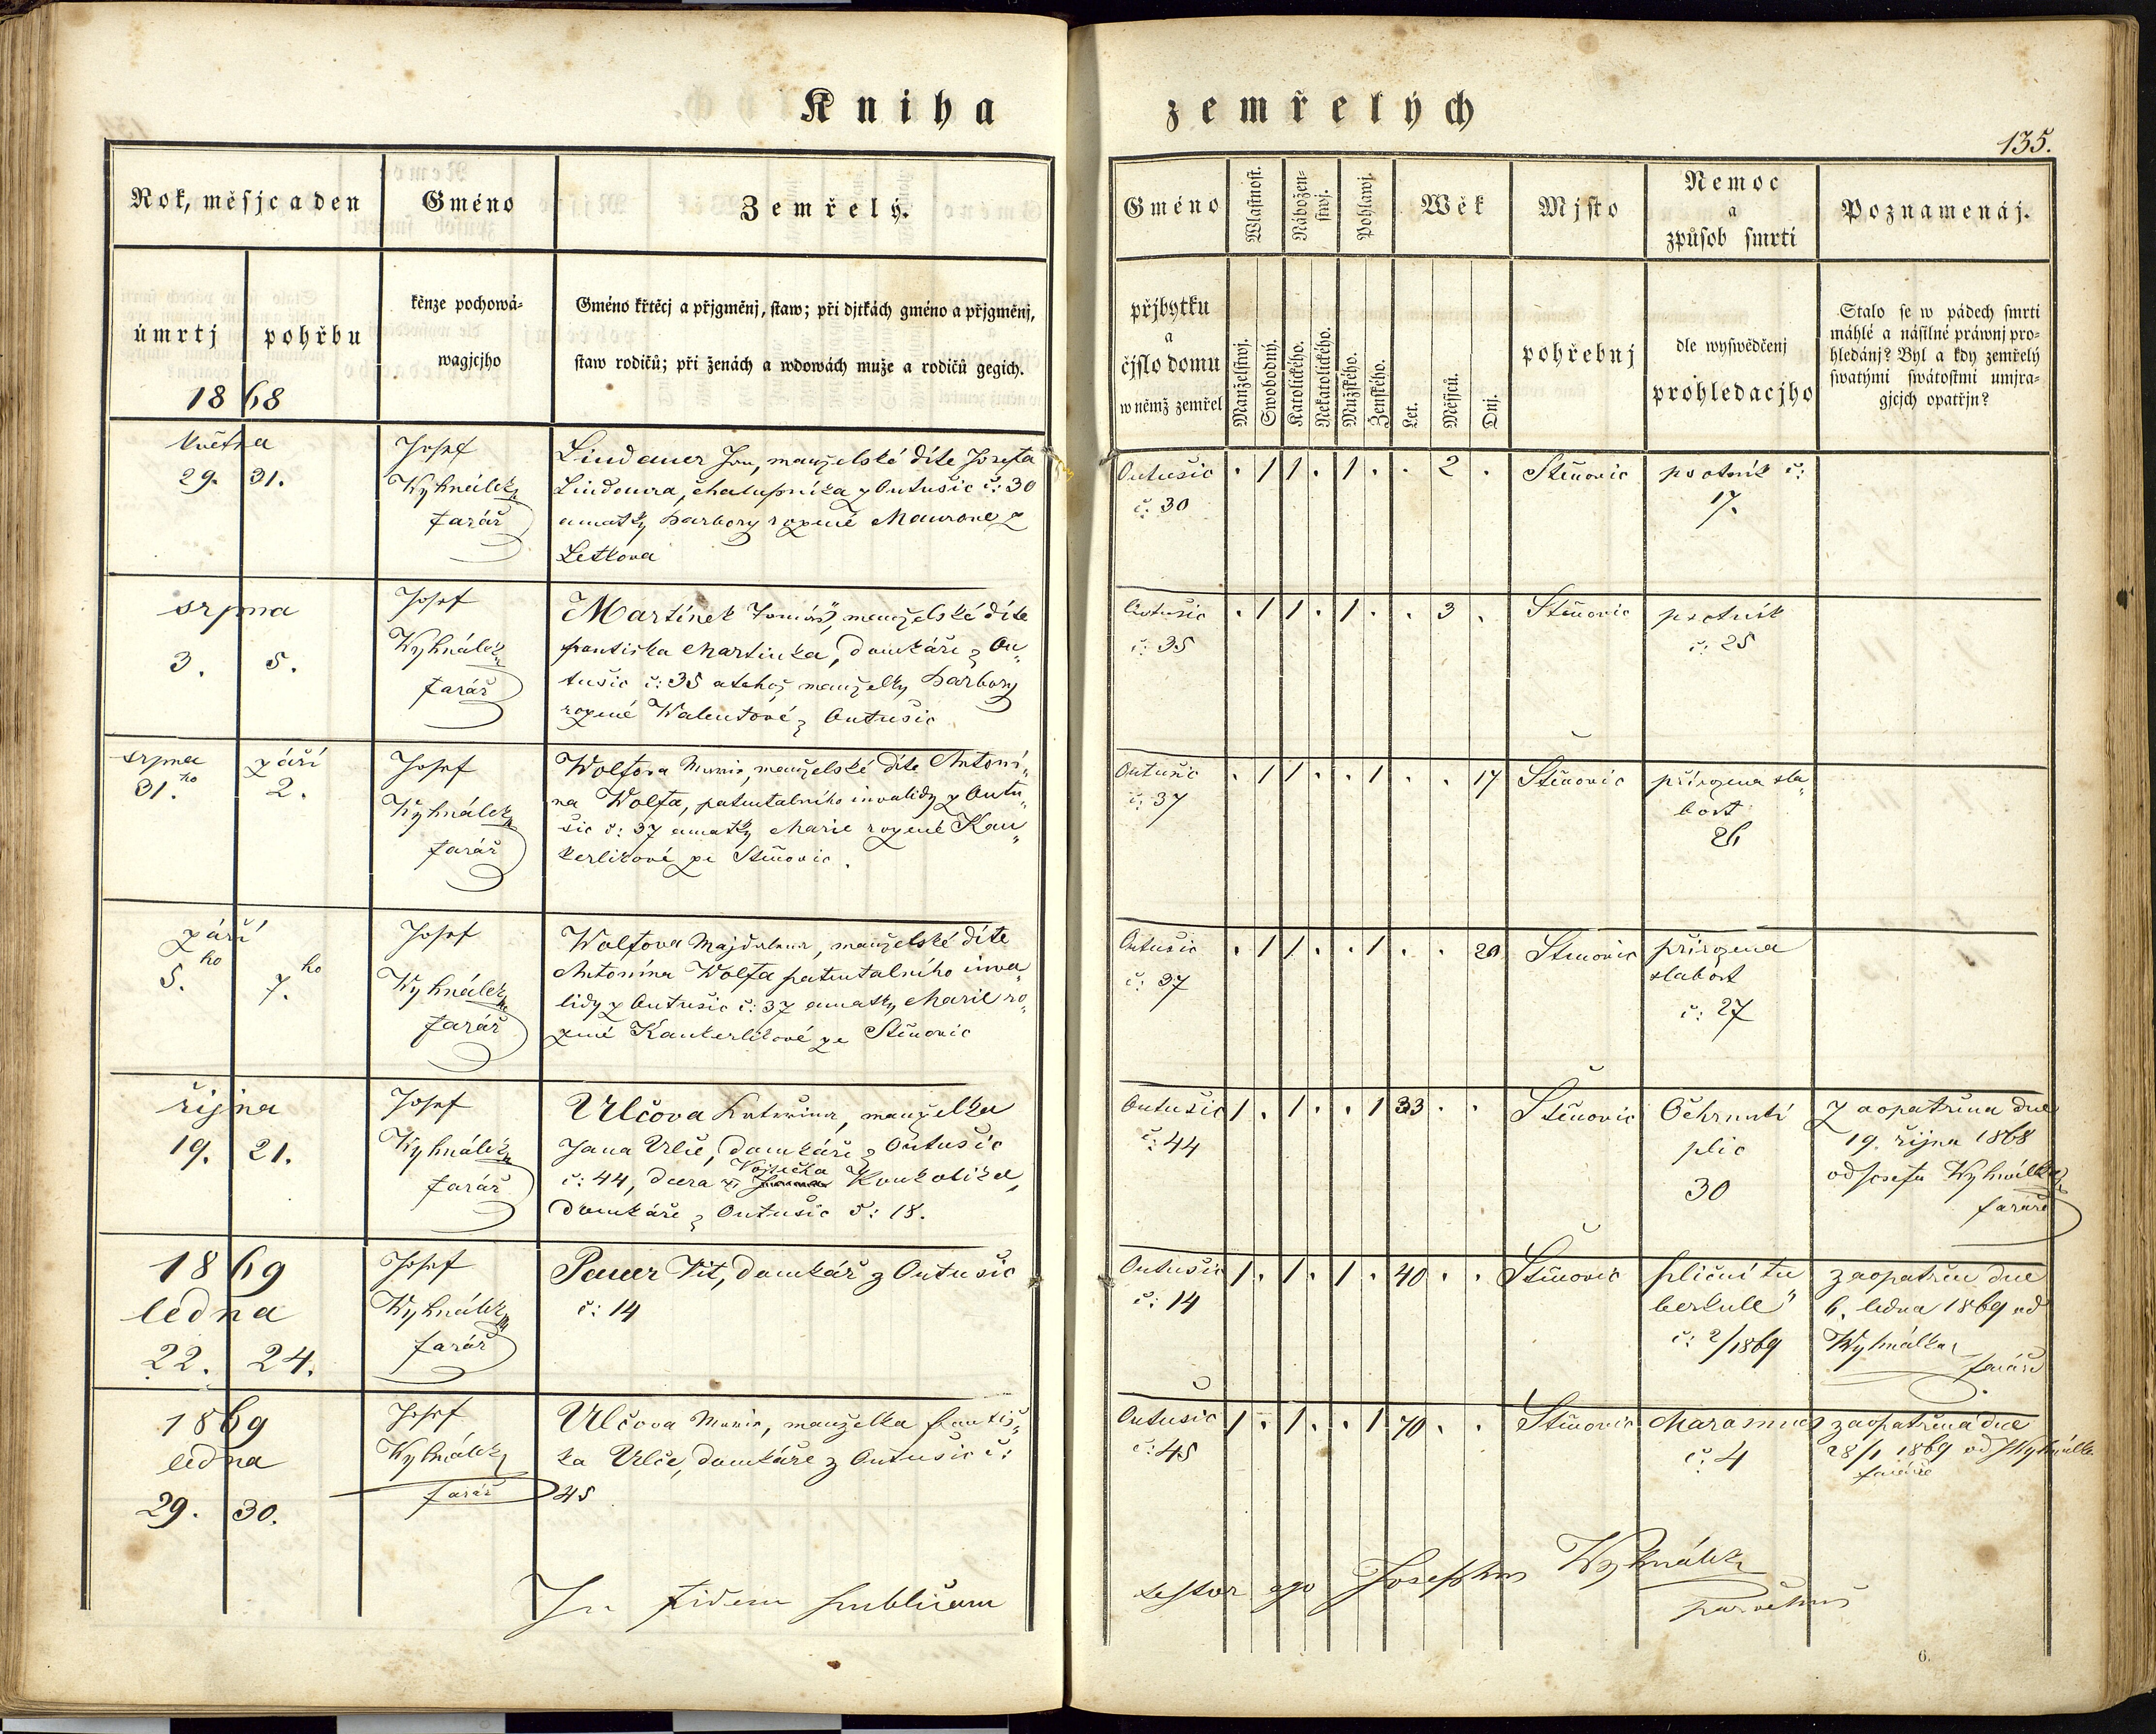 Kniha zemřelých
135.
Rok, měsjc a den
Gméno
Zemřelý.
Gméno
Wlastnost.
Nábožen-
stwj.
Pohlawj.
Wěk
Mjsto
Nemoc
a
způsob smrti
Poznamenáj.
úmrtj
pohřbu
1868
kěnze pochowá-
wagjcjho
Gméno křtěcj a přjgměnj, staw; při djtkách gméno a přjgměnj,
staw rodičů; při ženách a wdowách muže a rodičů gegich.
přjbytku
a
čjslo domu
w němž zemřel
Manželstwj.
Swobodný.
Katolického.
Nekatolického.
Mužského.
Ženského.
Let.
Měsjců.
Dnj.
pohřebnj
dle wyswědčenj
prohledacjho
Stalo se w pádech smrti
máhlé a násilné práwnj pro-
hledánj? Byl a kdy zemřelý
swatými swátostmi umjra-
gjcjch opatřjn?
května
29. 31.
Josef
Wyhnálek
farář
Lindauer Jan, manželské díte Josefa
Lindaura, chalupníka z Outušic č: 30
a matky Barbory rozené Maurove z
Letkova
Outušic
č: 30
. 1 1 . 1 . . 2 .
Štěnovic
psotník č:
17.
srpna
3. 5.
Josef
Wyhnálek
farář
Martínek Tomáš, manželské díte
Frantiska Martinka, domkáře z Ou„
tušic č: 35 a tehož manželky Barbory
rozené Walentové z Outušic
Outušic
č: 35
. 1 1 . 1 . . 3 .
Štěnovic
psotník
č: 25
srpna září
31.ho 2.
Josef
Wyhnálek
farář
Wolfova Marie, manželské díte Antoni„
na Wolfa, patentalního invalidy z Outu„
šic č: 37 a matky Marie rozené Kau„
kerlikové ze Štěnovic.
Outušic
č: 37
. 1 1 . . 1 . . 17
Štěnovic
přirozena sla„
bost
26
září
5.ho 7.ho
Josef
Wyhnálek
farář
Wolfova Majdalena, manželské díte
Antonína Wolfa patentalního inva„
lidy z Outušic č: 37 a matky Marie ro„
zené Kaukerlikové ze Štěnovic
Outušic
č: 37
. 1 1 . . 1 . . 20
Štěnovic
přirozena
slabost
č: 27
října
19. 21.
Josef
Wyhnálek
farář
Vlčova Kateřina, manželka
Jana Vlče, domkáře z Outušic
Vojtěcha
č: 44, dcera Koukolika,
domkáře z Outušic č: 18.
Outušic
č: 44
1 . 1 . . 1 33 . .
Štěnovic
Ochrnutí
plic
30
Zaopatřena dne
19. října 1868
od Josefa Wyhnálka
faráře
1869
ledna
22. 24.
Josef
Wyhnálek
farář
Pauer Vít, domkář z Outušic
č: 14
Outušic
č: 14
1 . 1 . 1 . 40 . .
Štěnovic
pliční tu
berkule"
č: 2/1869
zaopatřen dne
6. ledna 1869 od
Wyhnálka
faráře
1869
ledna
29. 30.
Josef
Wyhnálek
farář
Vlčova Marie, manželka Františ„
ka Vlče, domkáře z Outušic č:
45
Outušic
č: 45
1 . 1 . . 1 70 . .
Štěnovic
Marasmus
č: 4
zaopatřená dne
28/1 1869 od J Wyhnálka
faráře
In fidem publicam testor ego Josephus Wyhnálek
parochus
6.